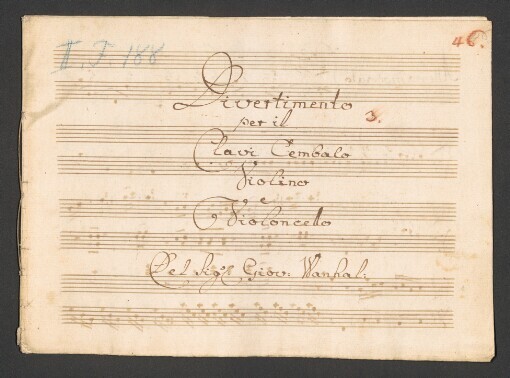 II. F 188
46.
Divertimento
3.
per il
Clavi Cembalo
Violino
e
Violoncello
Del Sig.r Giov: Wanhal: